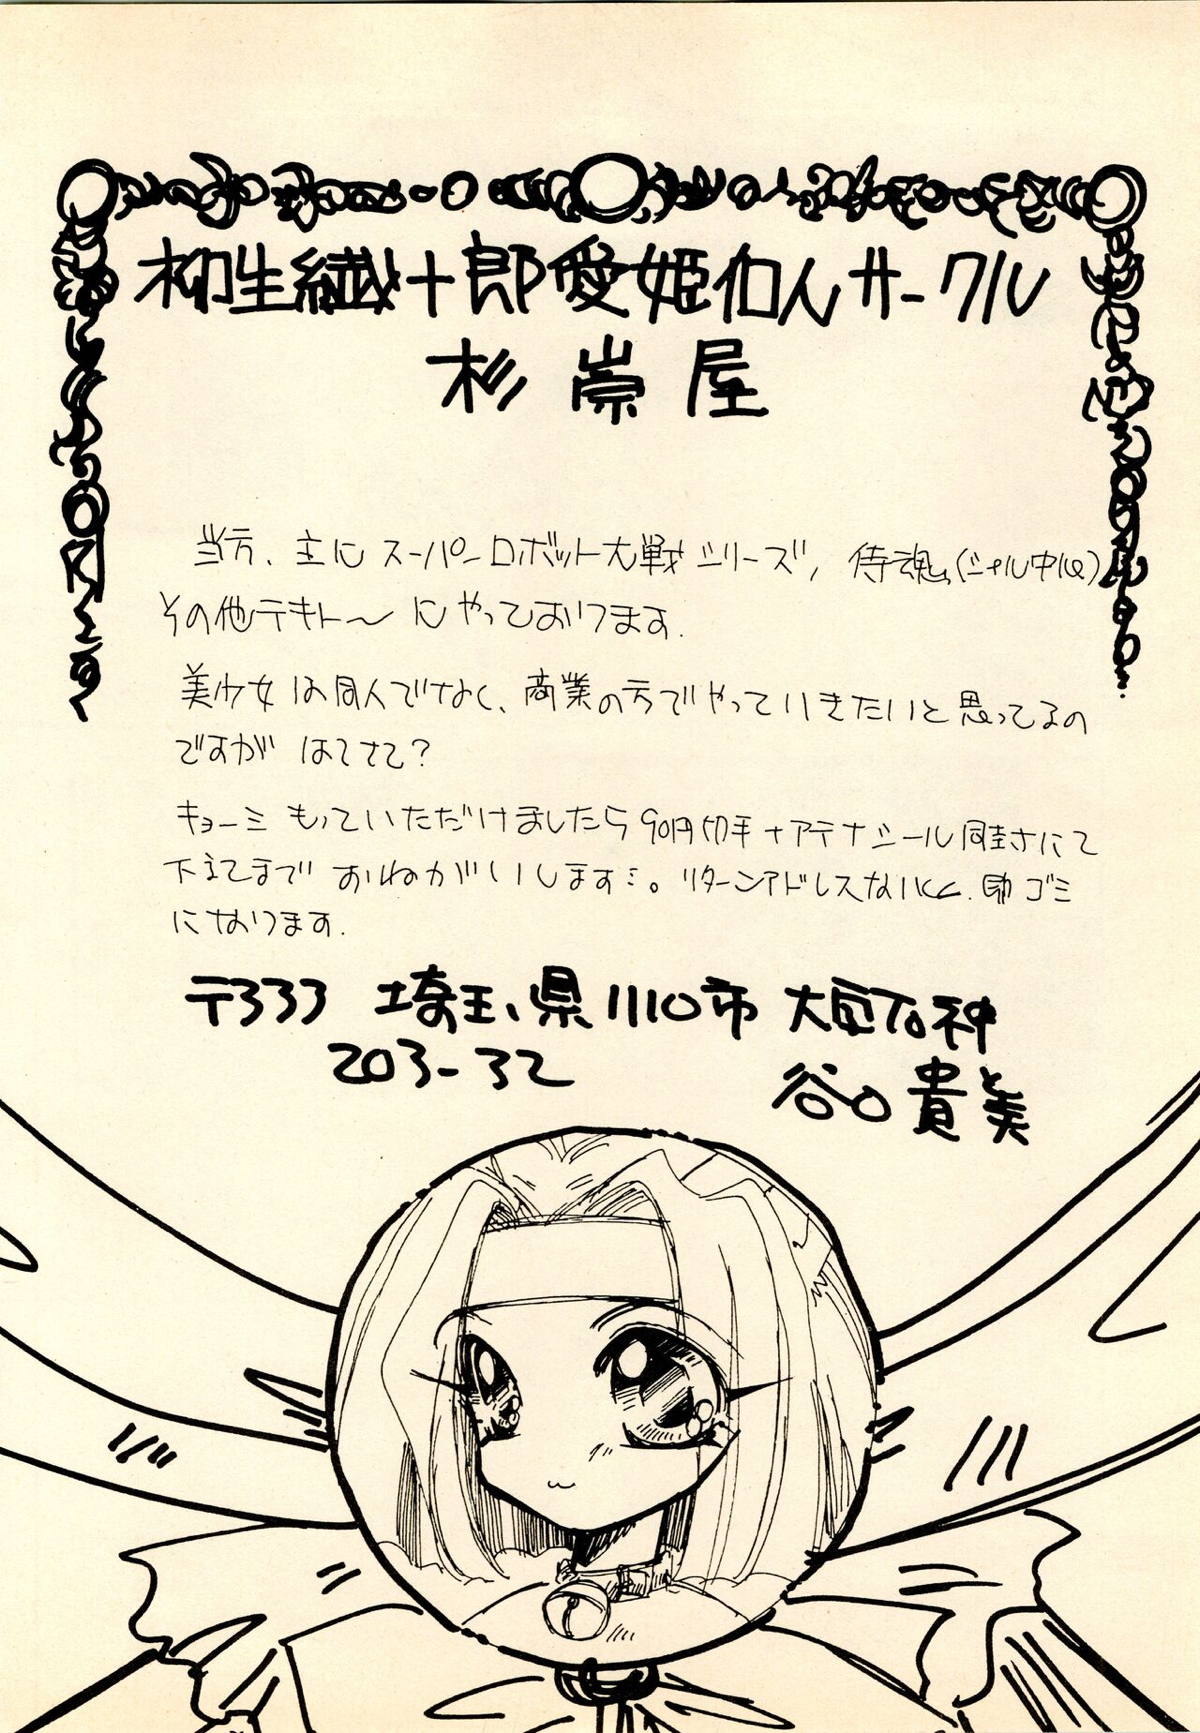 柳生繊十郎愛姫和んサークル
杉崇屋
当方、主に スーパーロボット大戦シリーズ、侍魂(シャル中心)
その他テキト〜にやっております.
美少女は同人でなく、商業の方でやっていきたいと思ってるの
ですが はてさて?
キョーミ もっていただけましたら 90円切手+アテナシール同封にて
下記まで おねがいします。リターンアドレスない 即ゴミ
になります.
〒333 埼玉県川口市
203-32 谷口貴美
と